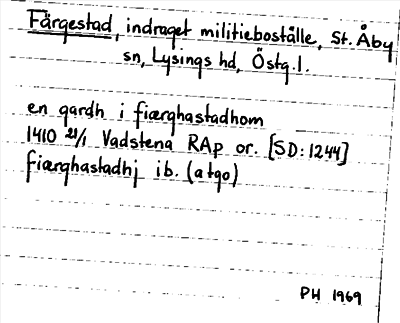 Färgestad, indraget militieboställe, St. Åby
sn, Lysings hd, Östg.l.
en gardh i fiærghastadhom
1410 21/1 Vadstena RAp or. [SD:1244]
fiærghastadhj ib. (atgo)
PH 1969